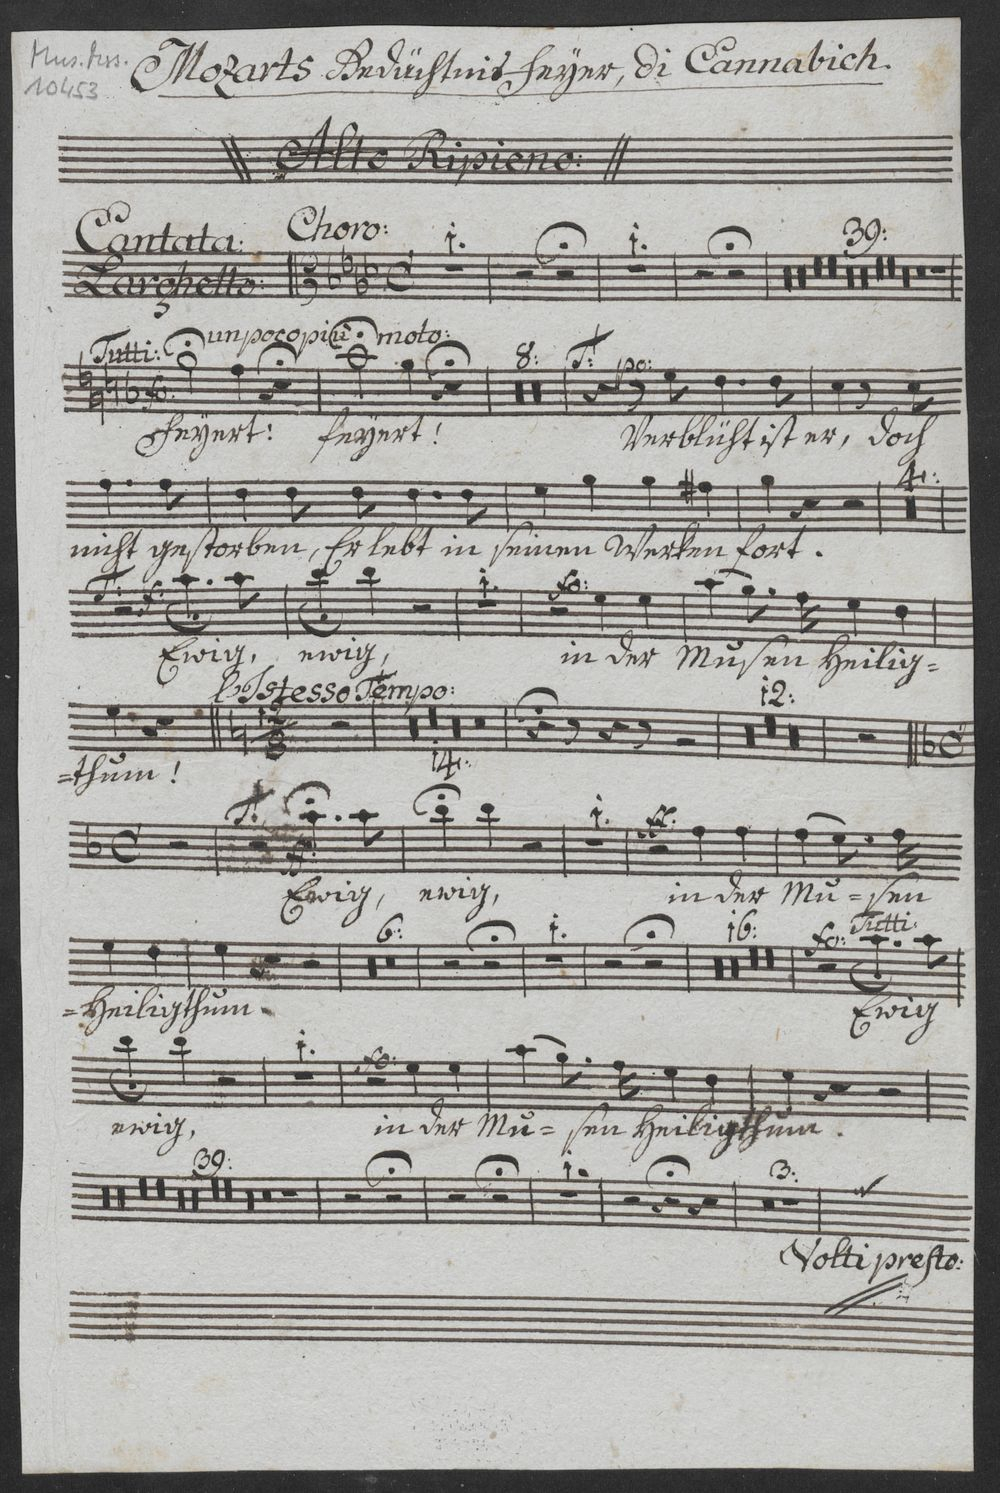 Mus. Mss.
10453
Mozarts Gedächtnis-Feyer, di Cannabich.
Alto Ripieno:
Cantata: Choro: 1. 1. 39:
Larghetto:
Tutti: un poco più moto: 8: T: po:
fo:
Feyert! feyert! Verblüht ist er, doch
4:
nicht gestorben, Er lebt in seinen Werken fort.
T: f: 1. fo:
Ewig, ewig, in der Musen Heilig=
L'Istesso Tempo: 12:
14:
=thum!
T: 1. ff:
ff:
Ewig, ewig, in der Mu=sen
6: 1. 16: fo: Tutti:
=Heiligthum. Ewig
1. fo:
ewig, in der Mu=sen Heiligthum.
39: 1. 3:
Volti presto: